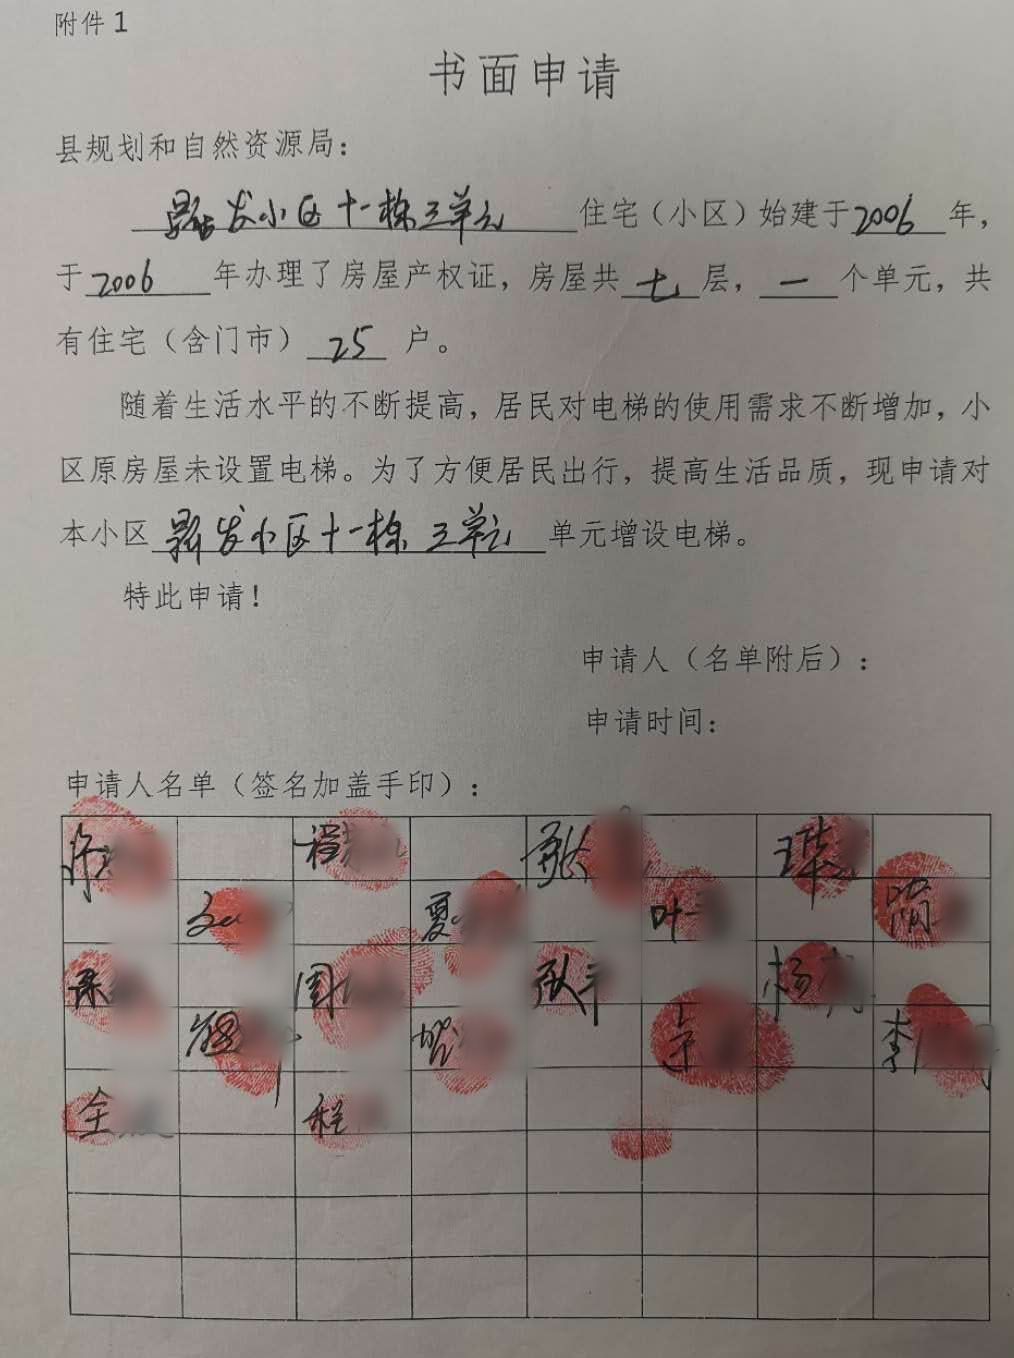 附件1
书面申请
县规划和自然资源局：
发小区十一栋三单元住宅（小区）始建于2006年，
于2006年办理了房屋产权证，房屋共七层，一个单元，共
有住宅（含门市）25户。
随着生活水平的不断提高，居民对电梯的使用需求不断增加，小
区原房屋未设置电梯。为了方便居民出行，提高生活品质，现申请对
本小区发小区十一栋三单元单元增设电梯。
特此申请！
申请人（名单附后）：
申请时间：
申请人名单（签名加盖手印）：
程
夏 叶
周 杨
贺 李
全 程